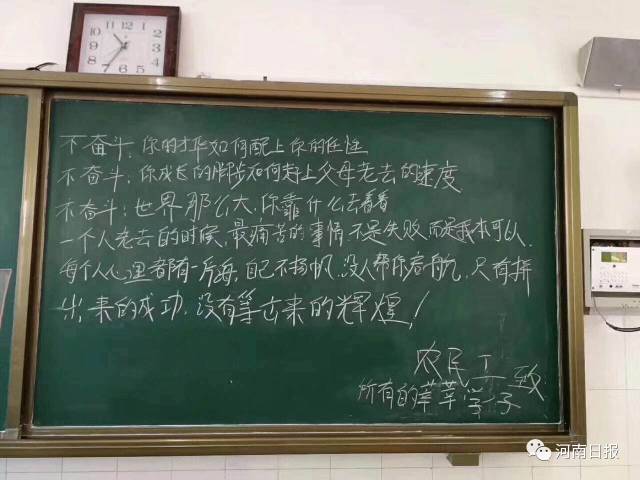 不奋斗，你的才华如何配上你的任性
不奋斗：你成长的脚步如何赶上父母老去的速度
不奋斗：世界那么大，你靠什么去看看
一个人老去的时候，最痛苦的事情，不是失败，而是我本可以，
每个人心里都有一片海，自己不扬帆，没人帮你启航，只有拼
出来的成功，没有等出来的辉煌！
农民工致
所有的莘莘学子
河南日报